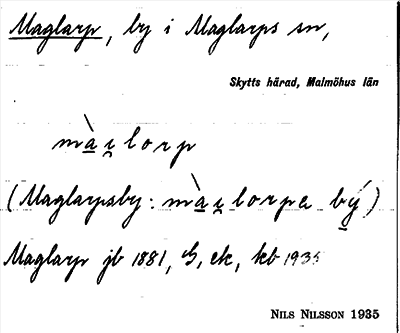 Maglarp, by i Maglarps sn,
Skytts härad, Malmöhus län
màu̯lorp
(Maglarpsby: màu̯lorpa bý)
Maglarp jb 1881, G, ek, kb 1935
NILS NILSSON 1935